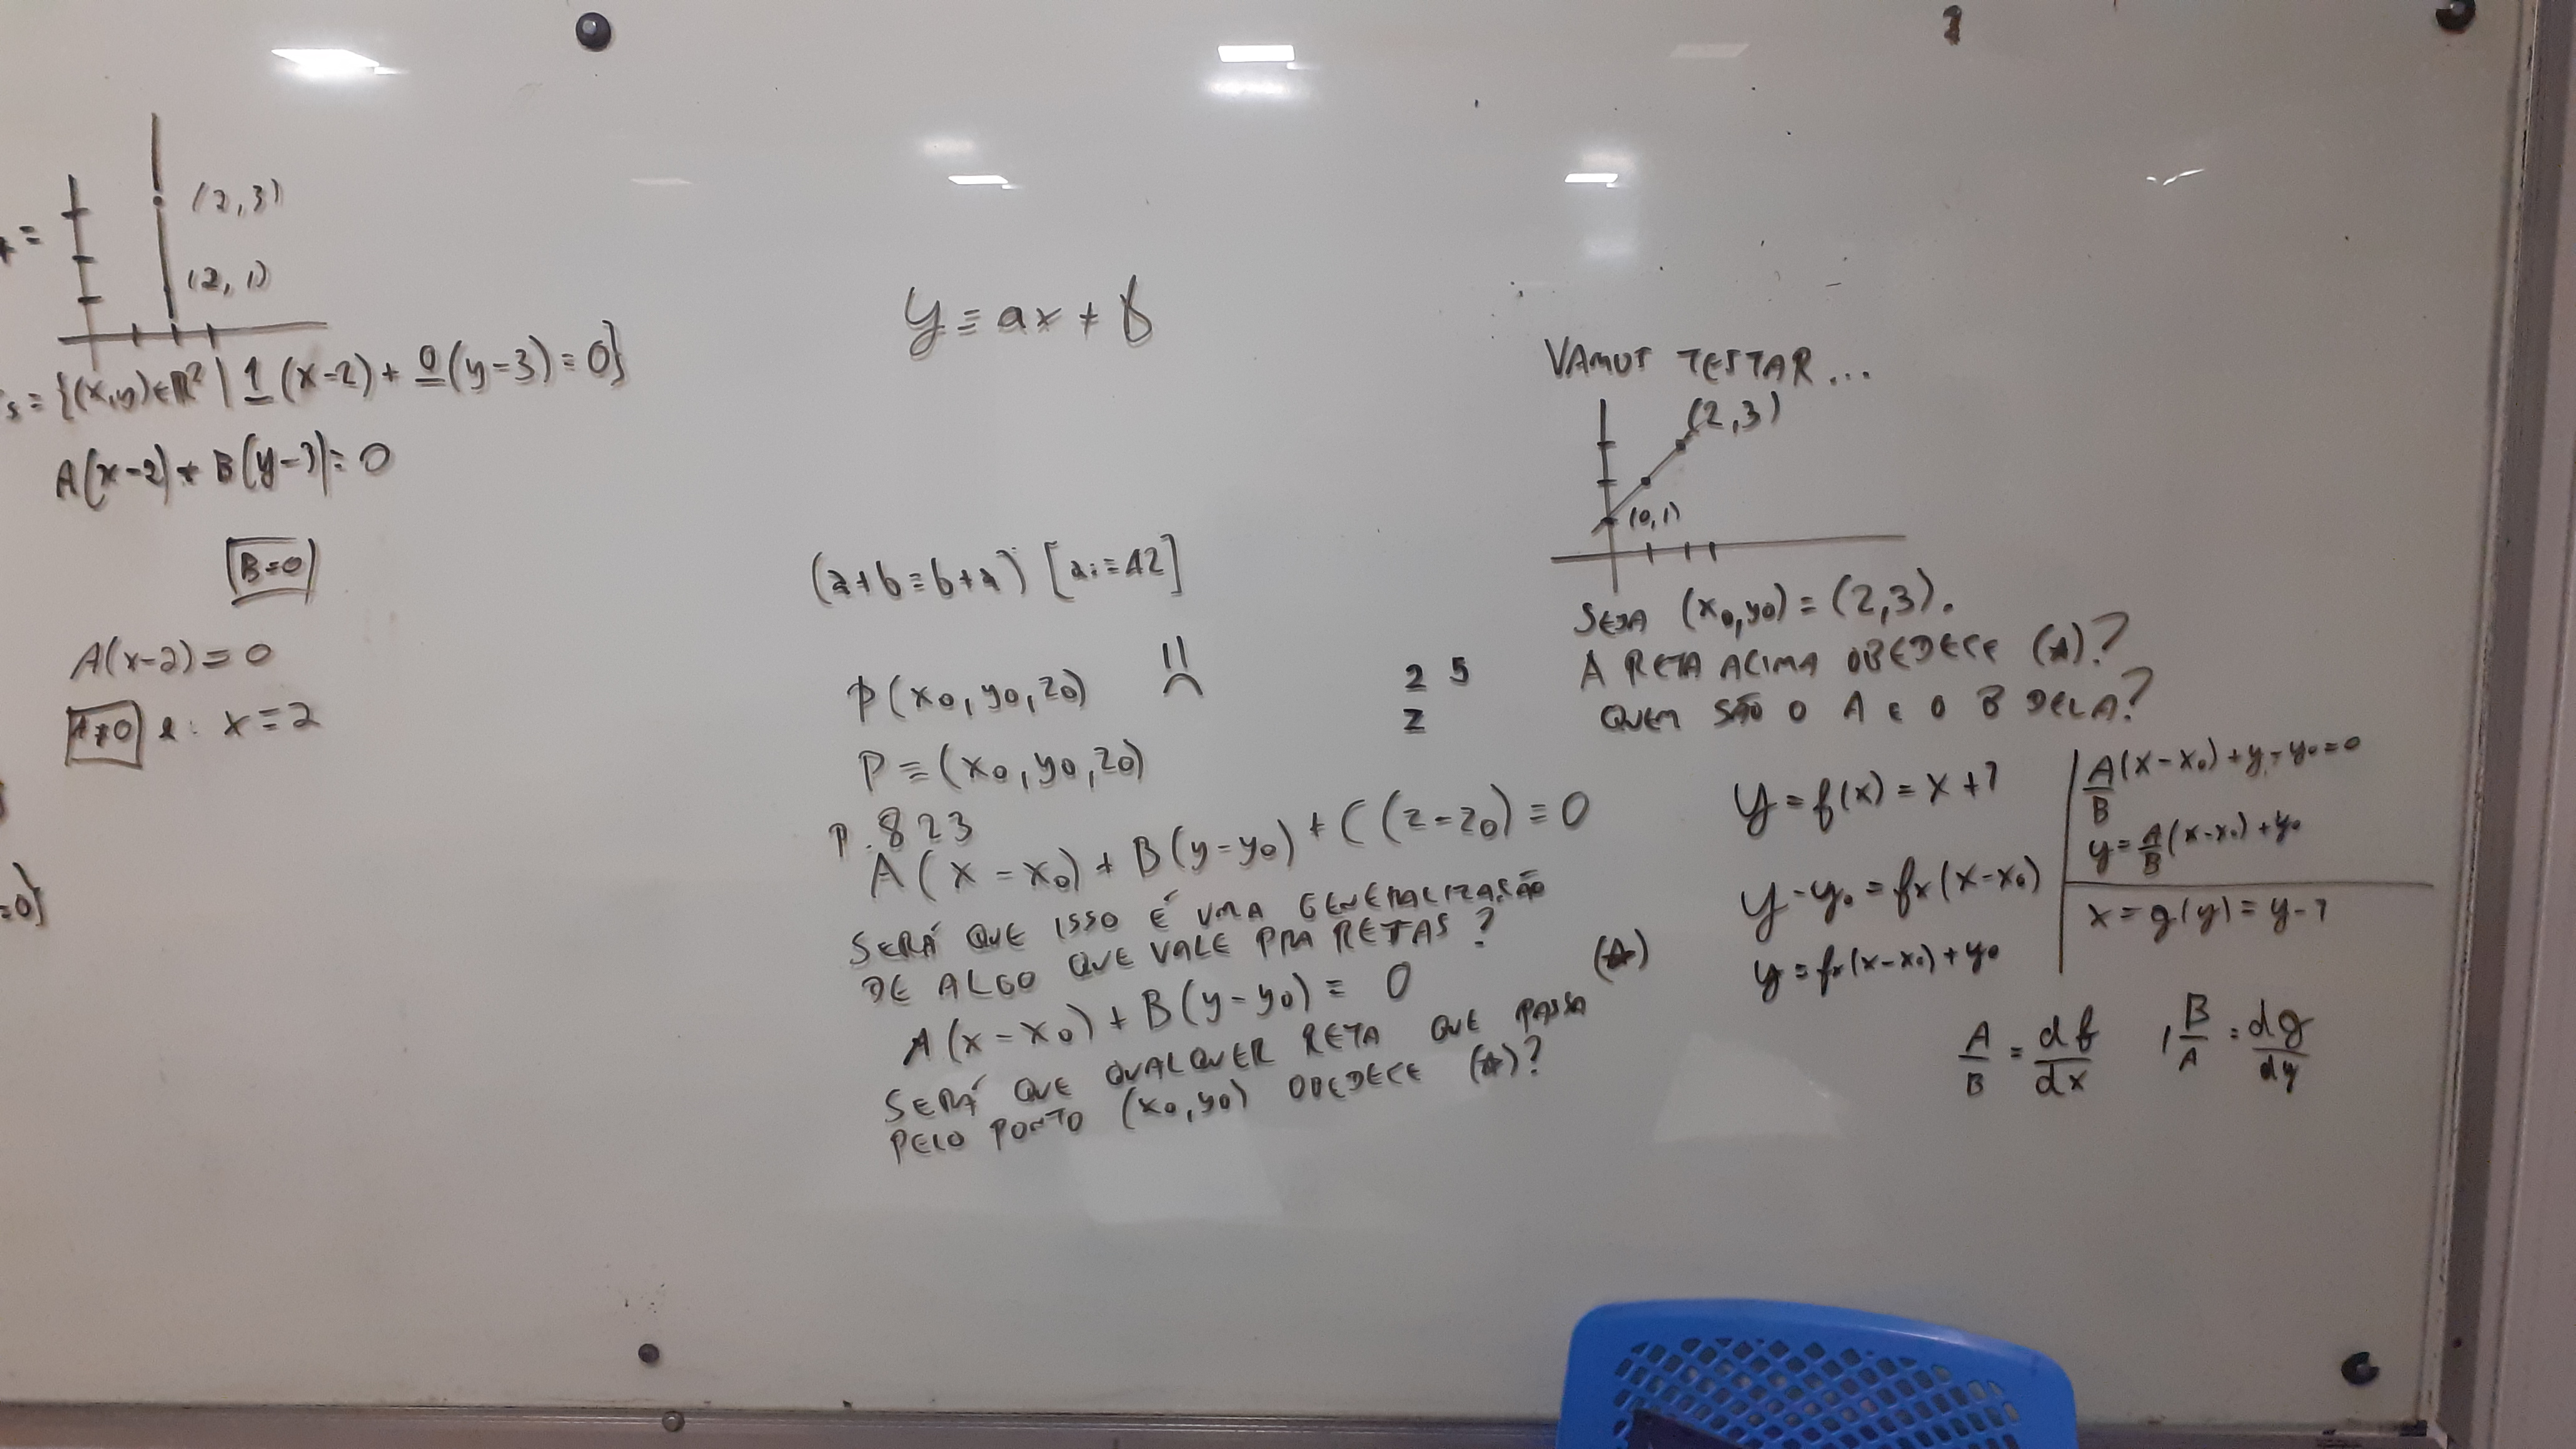 (2,3)
(2,1)
= {(x,y)∈R² | 1(x-2) + 0(y-3) = 0}
A(x-2) + B(y-3) = 0
B=0
A(x-2) = 0
A≠0 e: x = 2
=0}
y = ax + b
(a+b=b+a) [a:=42]
P(x₀, y₀, z₀)
P = (x₀, y₀, z₀)
P. 823
A(x - x₀) + B(y - y₀) + C(z - z₀) = 0
SERÁ QUE ISSO É UMA GENERALIZAÇÃO
DE ALGO QUE VALE PRA RETAS?
A(x - x₀) + B(y - y₀) = 0 (★)
SERÁ QUE QUALQUER RETA QUE PASSA
PELO PONTO (x₀, y₀) OBEDECE (★)?
2 5
Z
VAMOS TESTAR...
(2,3)
(0,1)
SEJA (x₀,y₀) = (2,3).
A RETA ACIMA OBEDECE (★)?
QUEM SÃO O A E O B DELA?
y = f(x) = x + 1
y - y₀ = fx(x-x₀)
y = fx(x-x₀) + y₀
A/B (x-x₀) + y - y₀ = 0
y = A/B (x-x₀) + y₀
x = g(y) = y - 1
A/B = df/dx , B/A = dg/dy